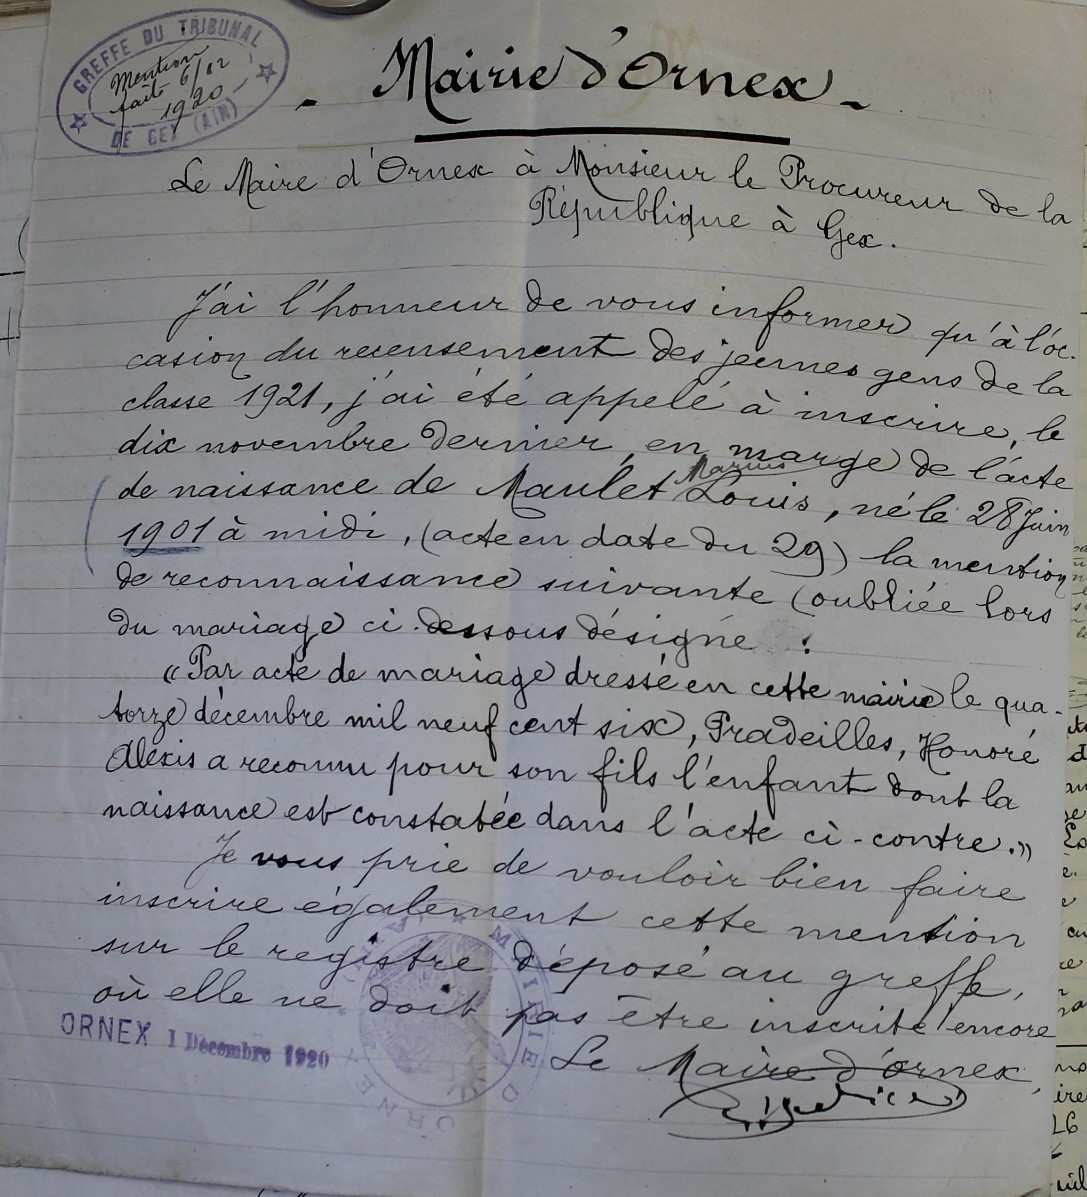 GREFFE DU TRIBUNAL
DE GEX (AIN)
Mention
faite 6/12
1920
- Mairie d'Ornex -
Le Maire d'Ornex à Monsieur le Procureur de la
République à Gex.
J'ai l'honneur de vous informer qu'à l'oc-
casion du recensement des jeunes gens de la
classe 1921, j'ai été appelé à inscrire, le
dix novembre dernier, en marge de l'acte
Marius
de naissance de Maulet Louis, né le 28 Juin
1901 à midi, (acte en date du 29) la mention
de reconnaissance suivante (oubliée lors
du mariage ci-dessous désigné :
« Par acte de mariage dressé en cette mairie le qua-
torze décembre mil neuf cent six, Pradeilles, Honoré
Alexis a reconnu pour son fils l'enfant dont la
naissance est constatée dans l'acte ci-contre. »
Je vous prie de vouloir bien faire
inscrire également cette mention
sur le registre déposé au greffe,
où elle ne doit pas être inscrite encore
ORNEX 1 Décembre 1920
MAIRIE D'ORNEX
Le Maire d'Ornex,